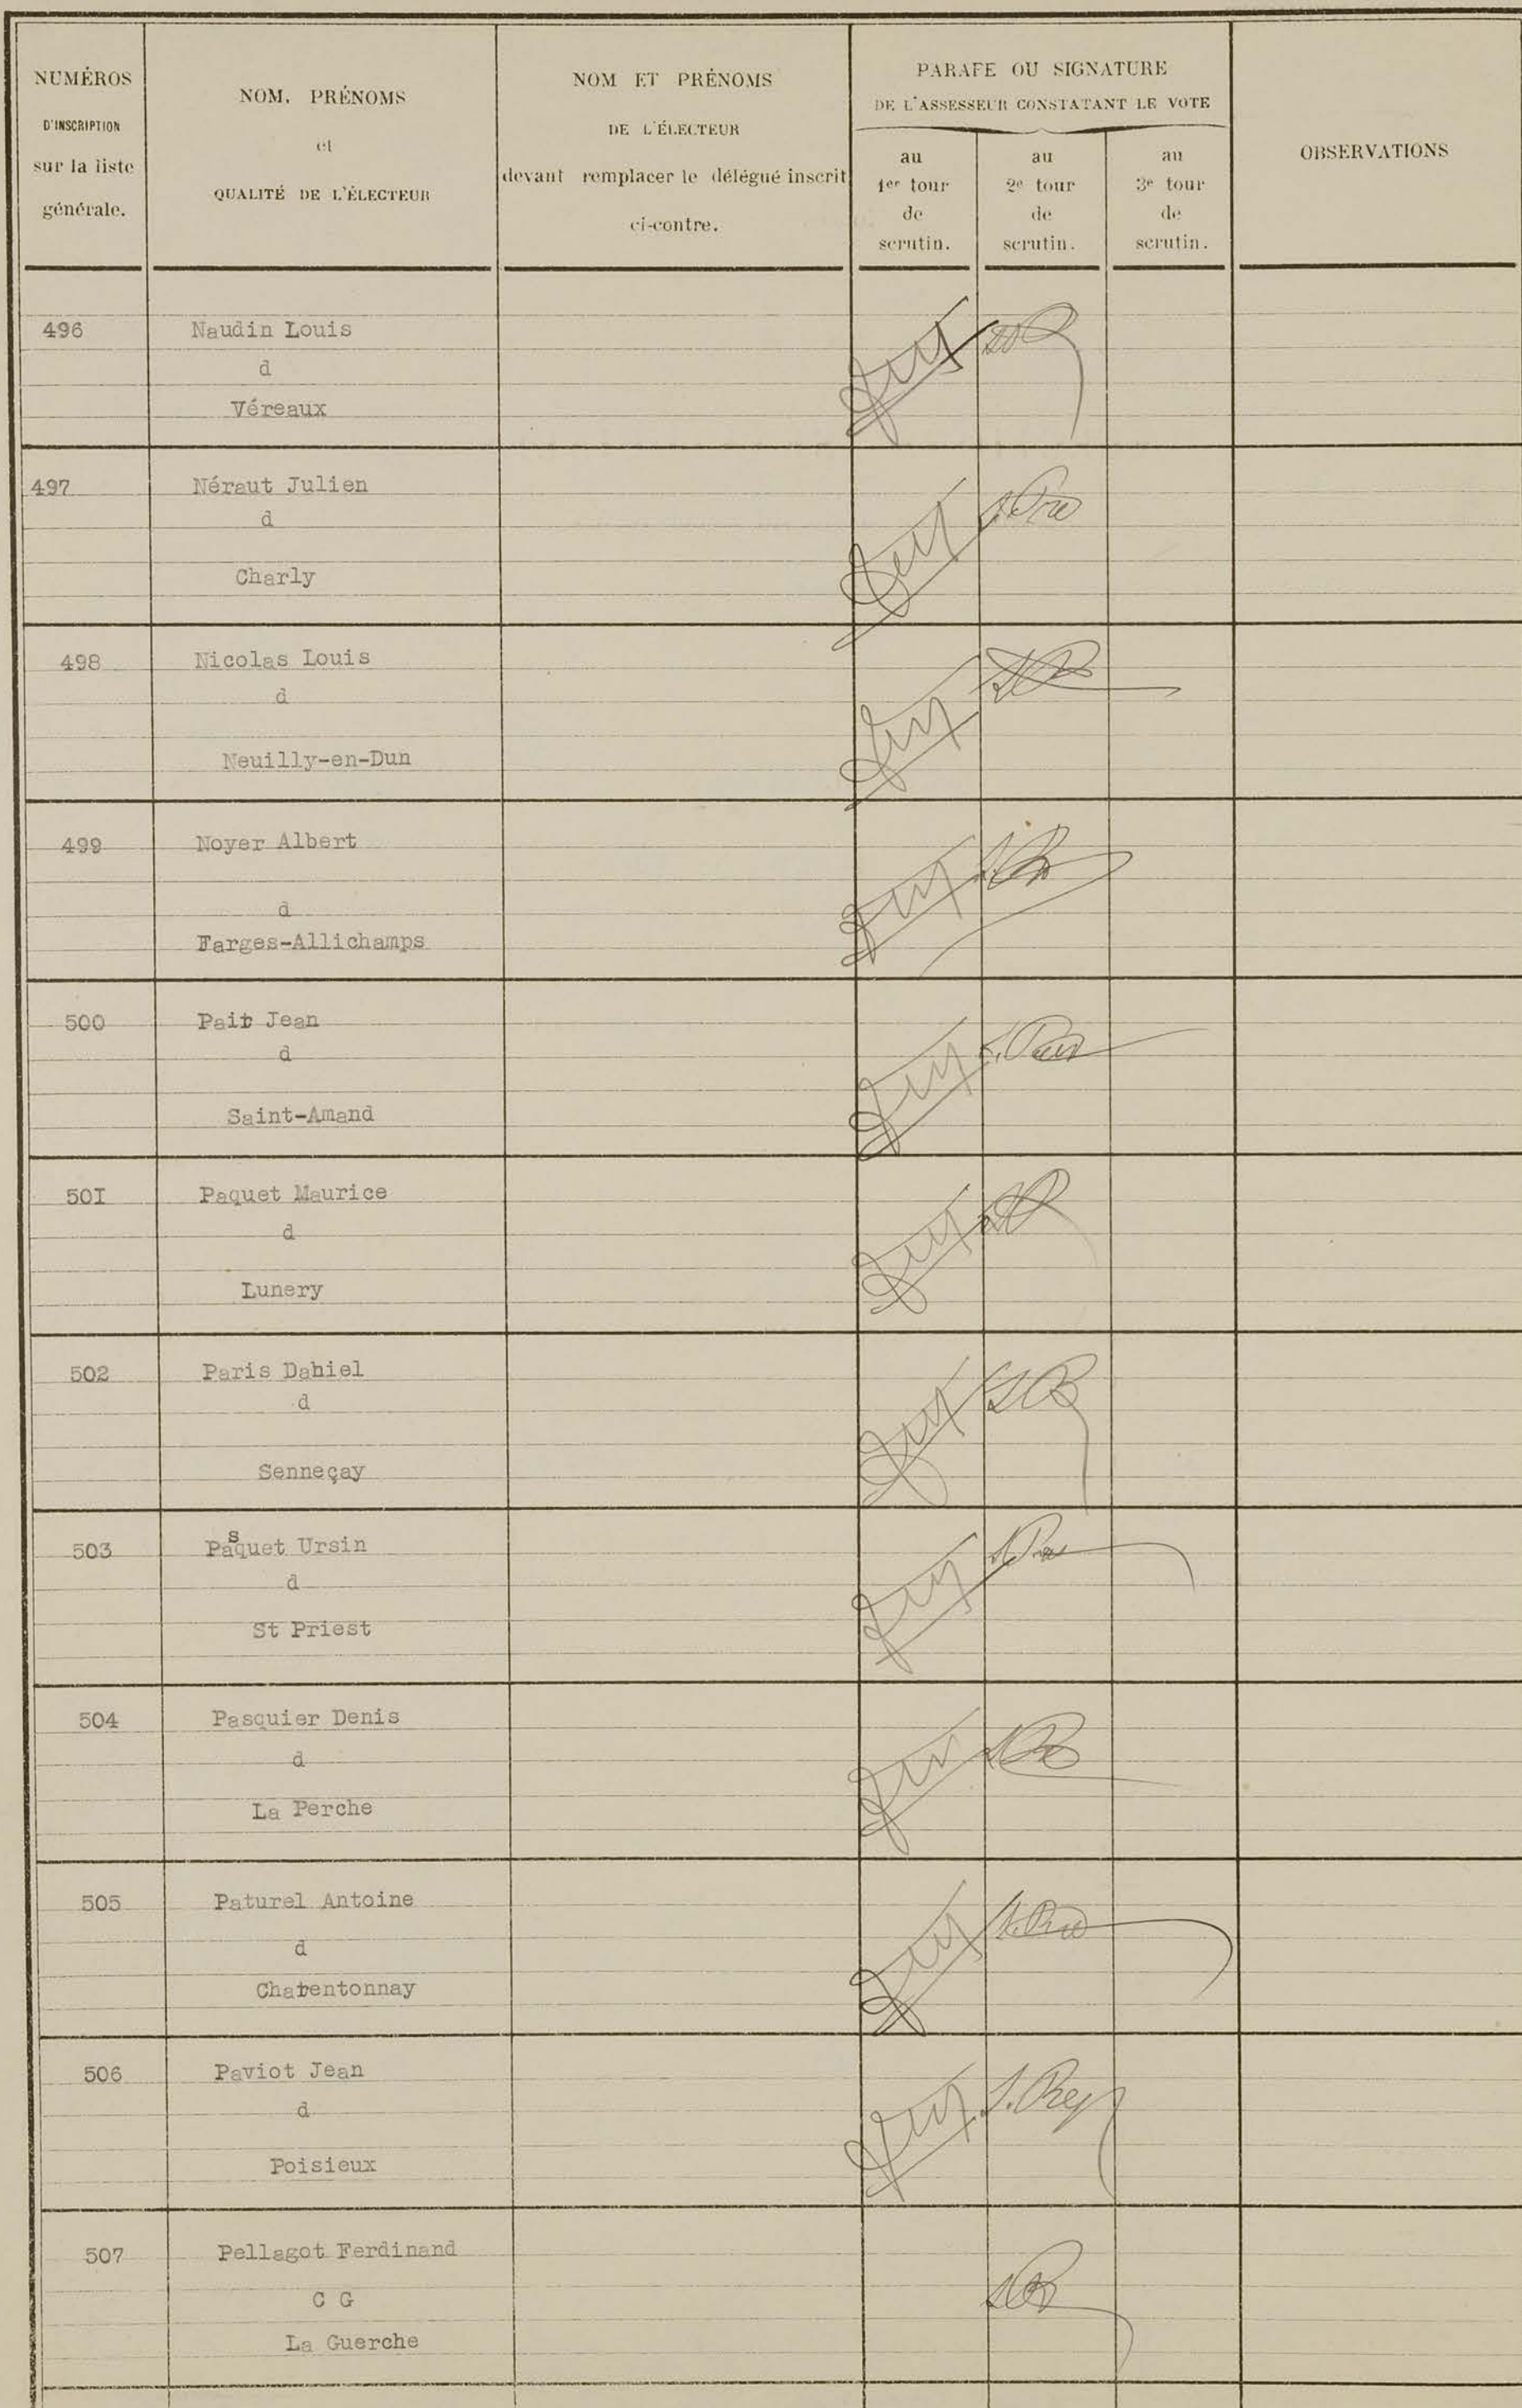 NUMÉROS
D'INSCRIPTION
sur la liste
générale.
NOM. PRÉNOMS
et
QUALITÉ DE L'ÉLECTEUR
NOM ET PRÉNOMS
DE L'ÉLECTEUR
devant remplacer le délégué inscrit
ci-contre.
PARAFE OU SIGNATURE
DE L'ASSESSEUR CONSTATANT LE VOTE
au
1er tour
de
scrutin.
au
2e tour
de
scrutin.
au
3e tour
de
scrutin.
OBSERVATIONS
496 Naudin Louis
d
Véreaux
497 Néraut Julien
d
Charly
498 Nicolas Louis
d
Neuilly-en-Dun
499 Noyer Albert
d
Farges-Allichamps
500 Jean
d
Saint-Amand
50I Paquet Maurice
d
Lunery
502 Paris Dahiel
d
Senneçay
503 Pasquet Ursin
d
St Priest
504 Pasquier Denis
d
La Perche
505 Paturel Antoine
d
Charentonnay
506 Paviot Jean
d
Poisieux
507 Pellagot Ferdinand
C G
La Guerche